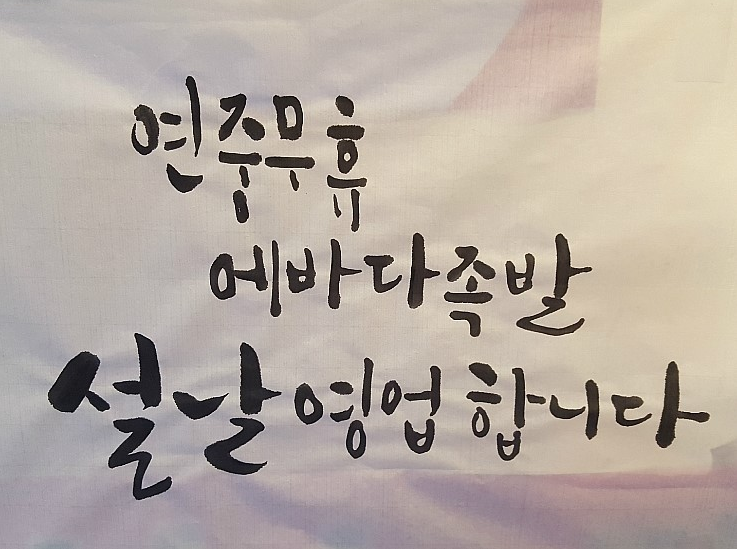 연중무휴
에바다족발
설날 영업 합니다